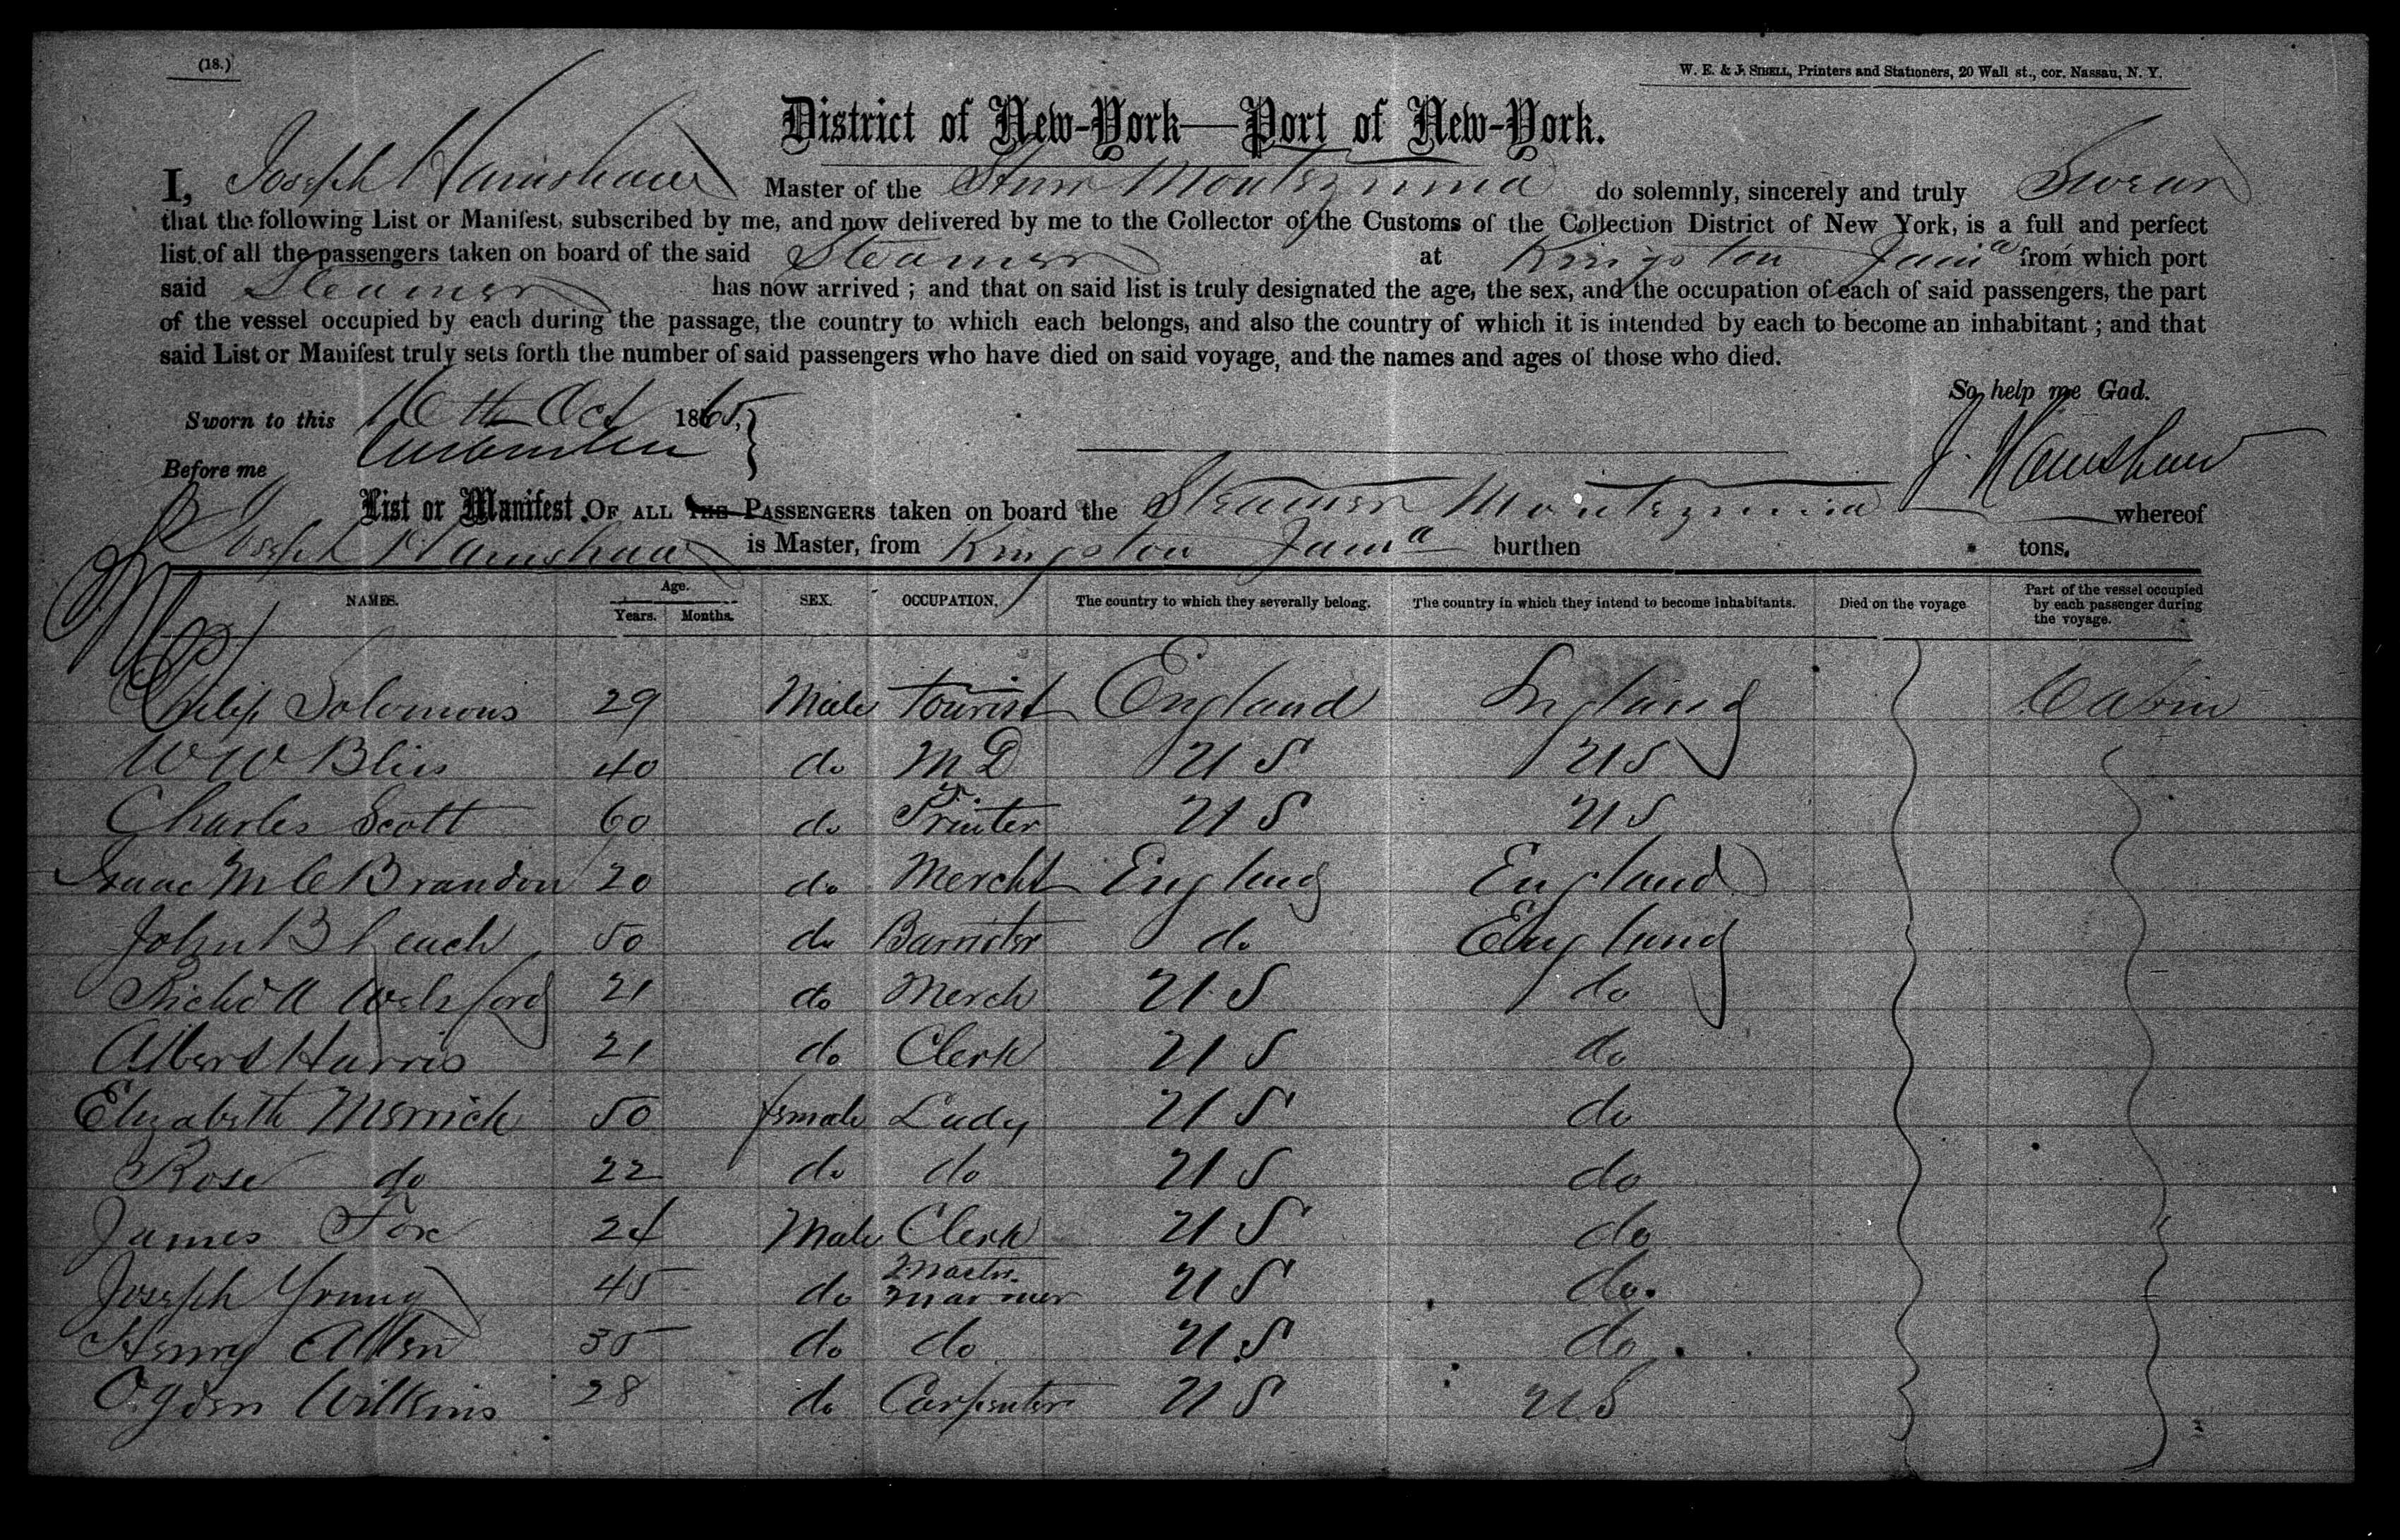 (18.)
W. E. & J. SIBELL, Printers and Stationers, 20 Wall st., cor. Nassau, N. Y.
District of New-York—Port of New-York.
I, Joseph Hamshaw Master of the Stmr Montezuma do solemnly, sincerely and truly Swear
that the following List or Manifest, subscribed by me, and now delivered by me to the Collector of the Customs of the Collection District of New York, is a full and perfect
list of all the passengers taken on board of the said Steamer at Kingston Jama from which port
said Steamer has now arrived ; and that on said list is truly designated the age, the sex, and the occupation of each of said passengers, the part
of the vessel occupied by each during the passage, the country to which each belongs, and also the country of which it is intended by each to become an inhabitant ; and that
said List or Manifest truly sets forth the number of said passengers who have died on said voyage, and the names and ages of those who died.
So help me God.
Sworn to this 16th Oct 1865,
J. Hamshaw
Before me
List or Manifest OF ALL THE PASSENGERS taken on board the Steamer Montezuma whereof
Joseph Hamshaw is Master, from Kingston Jama burthen tons.
NAMES. Age. Years. Months. SEX. OCCUPATION. The country to which they severally belong. The country in which they intend to become inhabitants. Died on the voyage Part of the vessel occupied by each passenger during the voyage.
Philip Solomons 29 Male tourist England England Cabin
W W Bliss 40 do M D U S U S
Charles Scott 60 do Printer U S U S
Isaac M C Brandon 20 do Mercht England England
John B Leach 50 do Barrister do England
Richd A Welsford 21 do Merch U S do
Albert Harris 21 do Clerk U S do
Elizabeth Merrick 50 female Lady U S do
Rose do 22 do do U S do
James Fox 24 Male Clerk U S do
Joseph Young 45 do Master Mariner U S do.
Henry Allen 35 do do U S do
Ogden Wilkins 28 do Carpenter U S U S